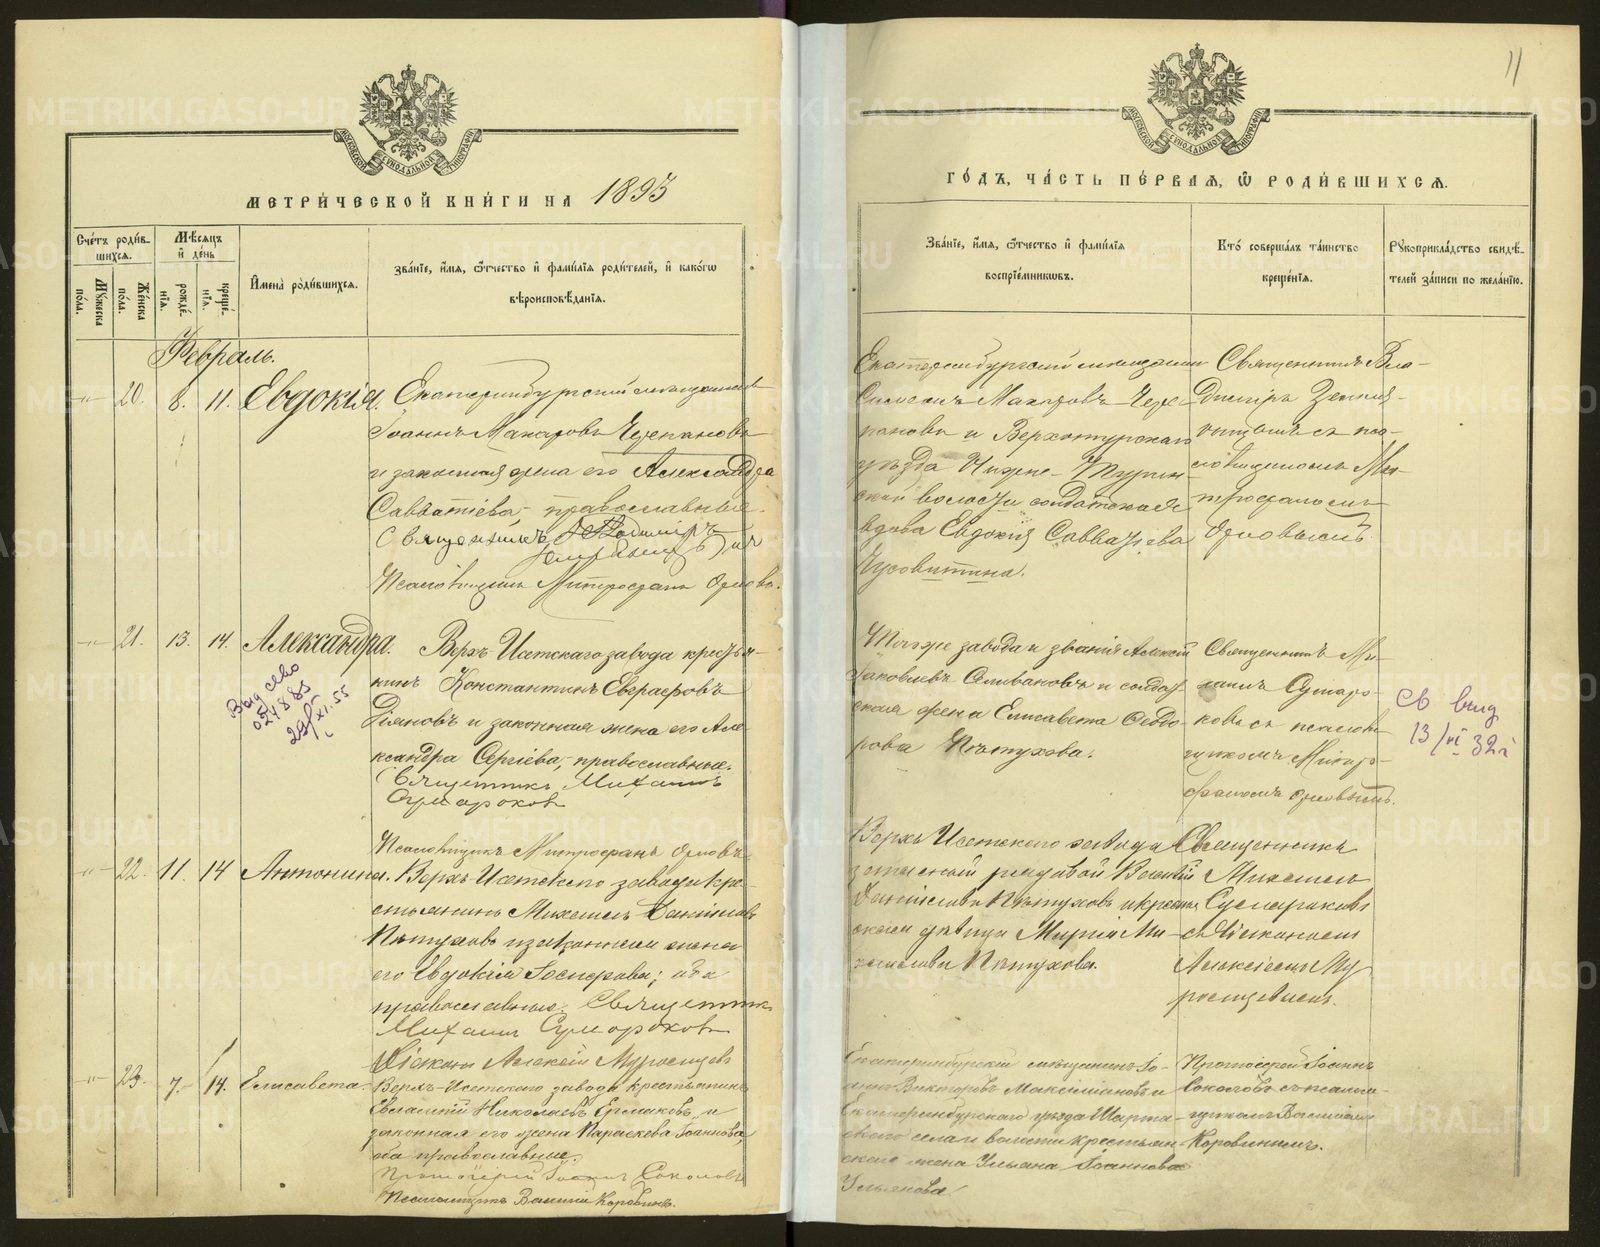 11
МЕТРИ́ЧЕСКОЙ КНИ́ГИ НА 1893
ГО́ДЪ, ЧА́СТЬ ПЕ́РВАЯ, Ѡ РОДИ́ВШИХСЯ.
Сче́тъ роди́в-
шихся.
Му́жеска
по́ла.
Же́нска
по́ла.
Мѣ́сяцъ
и де́нь
рожде́-
нія.
креще́-
нія.
Имена̀ роди́вшихся.
Зва́ніе, и́мя, ѻ́тчество и фами́лія роди́телей, и како́гѡ
вѣроисповѣ́данія.
Зва́ніе, и́мя, ѻ́тчество и фами́лія
воспріе́мниковъ.
Кто́ соверша́лъ та́инство
креще́нія.
Рукоприкла́дство свидѣ́-
телей за́писи по жела́нію.
Февраль.
20. 8. 11. Евдокія.
Екатеринбургскій мѣщанинъ
Іоаннъ Макаровъ Черепановъ
и законная жена его Александра
Савватіева, православные.
Священникъ Владиміръ
Земляницынъ
Псаломщикъ Митрофанъ Орловъ.
Екатеринбургскій мѣщанинъ
Симеонъ Макаровъ Чере-
пановъ и Верхотурскаго
уѣзда Нижне-Турин-
ской волости солдатская
вдова Евдокія Савватіева
Чусовитина.
Священникъ Вла-
диміръ Земляни-
цынъ съ пса-
ломщикомъ Ми-
трофаномъ
Орловымъ.
21. 13. 14. Александра.
Верхъ Исетскаго завода крестья-
нинъ Константинъ Евграфовъ
Діяновъ и законная жена его Але-
ксандра Сергіева, православные.
Священникъ Михаилъ
Сумароковъ
Псаломщикъ Митрофанъ Орловъ
Того же завода и званія Алексій
Іаковлевъ Селивановъ и солдат-
ская жена Елисавета Ѳеодо-
рова Пѣтухова.
Священникъ Ми-
хаилъ Сумаро-
ковъ съ псалом-
щикомъ Митро-
фаномъ Орловымъ.
Выд св во
024885
29/XI.55
Св выд
13/VI 32г
22. 11. 14 Антонина.
Верхъ-Исетскаго завода кре-
стьянинъ Михаилъ Даніиловъ
Пѣтуховъ и законная жена
его Евдокія; оба
православные. Священникъ
Михаилъ Сумароковъ
Діаконъ Алексій
Верхъ Исетскаго завода
запасный рядовой Василій
Даніиловъ Пѣтуховъ и крестьян-
ская дѣвица Марія Ми-
хаилова Пѣтухова.
Священникъ
Михаилъ
Сумароковъ
съ діакономъ
Алексіемъ
23. 7. 14. Елисавета.
Верхъ-Исетскаго завода крестьянинъ
Евлампій Николаевъ Ермаковъ и
законная его жена Параскева Іоаннова,
оба православные.
Протоіерей Іоаннъ Соколовъ
Псаломщикъ Василій Коровинъ.
Екатеринбургскій мѣщанинъ Іо-
аннъ Викторовъ Максиміановъ и
Екатеринбургскаго уѣзда Шарта-
скаго села и волости крестьян-
ская жена Ульяна Іоаннова
Ульянова.
Протоіерей Іоаннъ
Соколовъ съ псалом-
щикомъ Василіемъ
Коровинымъ.
METRIKI.GASO-URAL.RU